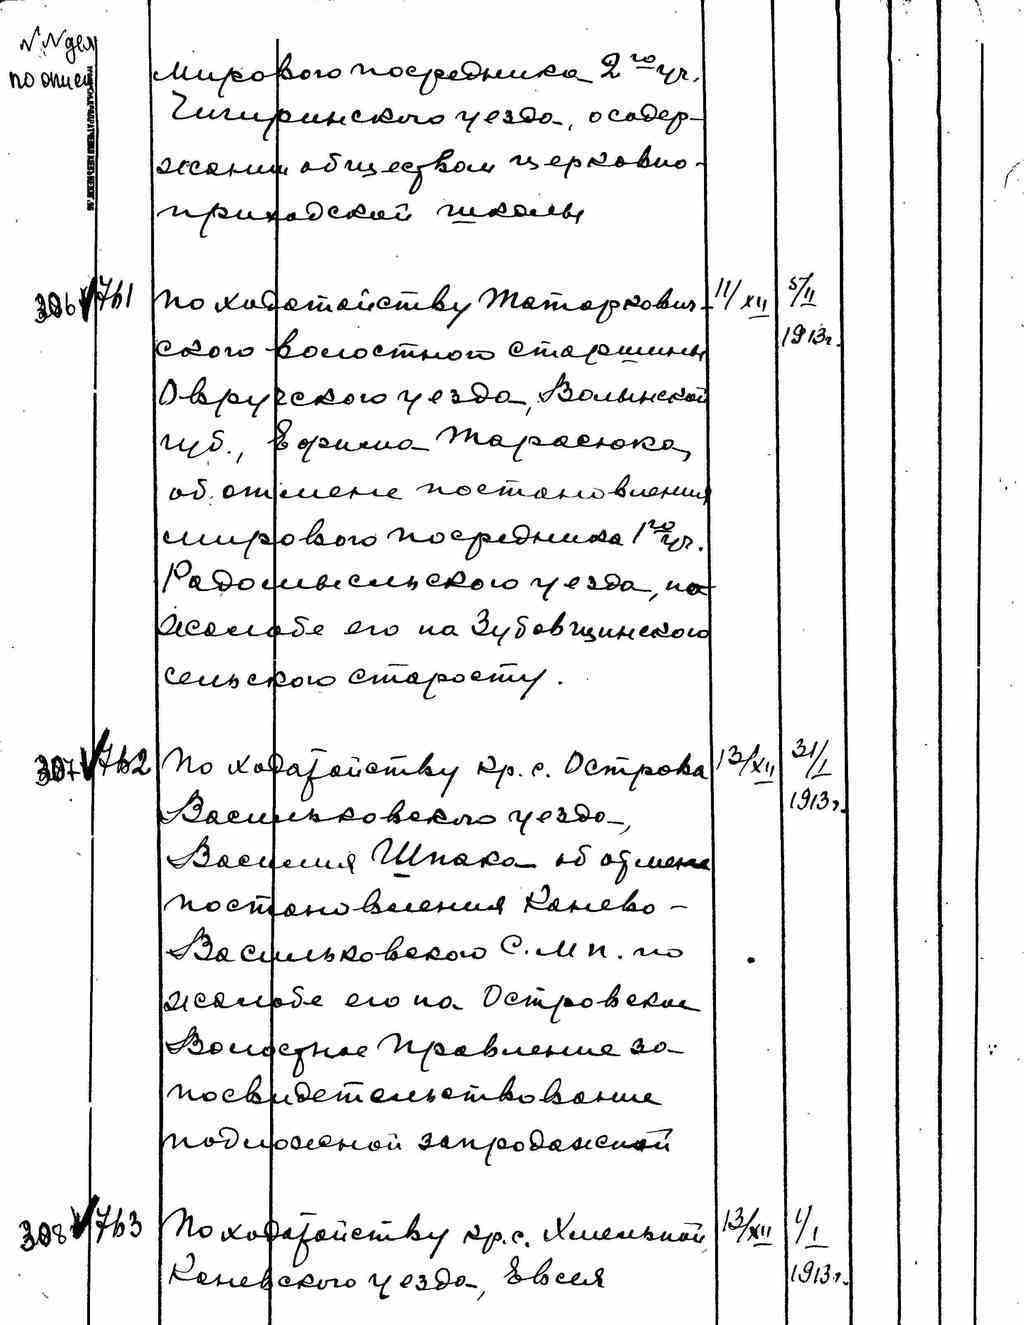 N.N дел
по описи
мирового посредника 2го уч.
Чигиринского уезда, о содер-
жании обществом церковно-
приходской школы
306 761 По ходатайству Татарнович- 11/XII 5/II
ского волостного старшины 1913г.
Овручского уезда, Волынской
губ., Ефима Тарасюка,
об отмене постановления
мирового посредника 1го уч.
Радомысльского уезда, по
жалобе его на Зубовщинского
сельского старосту.
307 762 По ходатайству кр. с. Острова 13/XII 31/I
Васильковского уезда, 1913г.
Василия Шпака об отмене
постановления Канево-
Васильковского С.М.п. по
жалобе его на Островское
Волостное Правление за
посвидетельствование
подложной запродажной
308 763 По ходатайству кр. с. Хмельной 13/XII 4/I
Каневского уезда, Евсея 1913г.